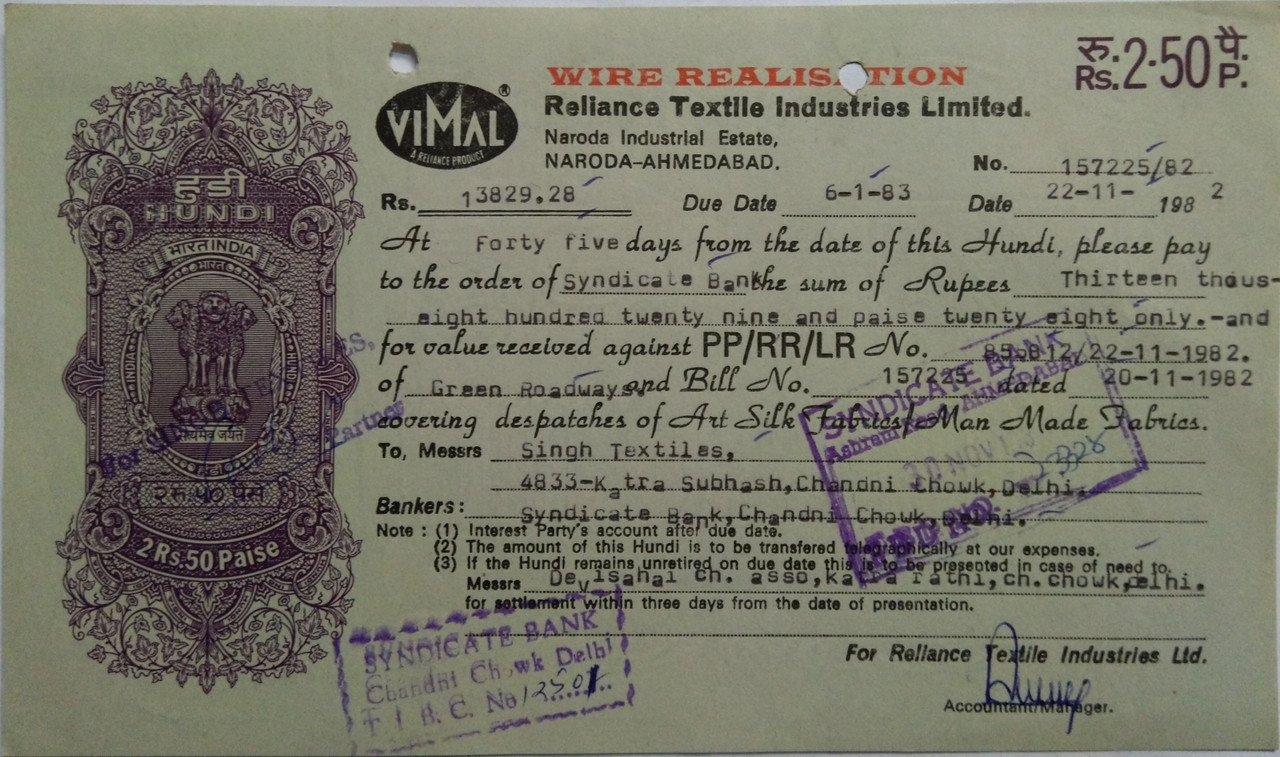 रु. 2·50 पै.
Rs. P.
WIRE REALISATION
VIMAL ®
A RELIANCE PRODUCT
Reliance Textile Industries Limited.
Naroda Industrial Estate,
NARODA-AHMEDABAD.
No. 157225/82
Rs. 13829.28 Due Date 6-1-83 Date 22-11- 1982
हुंडी
HUNDI
भारत INDIA
भारत
INDIA
सत्यमेव जयते
२ रु. ५० पैसे
2 Rs. 50 Paise
At Forty five days from the date of this Hundi, please pay
to the order of Syndicate Bank the sum of Rupees Thirteen thous-
eight hundred twenty nine and paise twenty eight only.-and
for value received against PP/RR/LR No. /22-11-1982.
of Green Roadways and Bill No. 157225 dated 20-11-1982
covering despatches of Art Silk Fabrics/Man Made Fabrics.
To, Messrs Singh Textiles,
4833-Katra Subhash, Chandni Chowk, Delhi.
Bankers: Syndicate Bank, Chandni Chowk, Delhi.
Note : (1) Interest Party's account after due date.
(2) The amount of this Hundi is to be transfered telegraphically at our expenses.
(3) If the Hundi remains unretired on due date this is to be presented in case of need to.
Messrs Devisahai Ch. asso, katra rathi, ch. chowk, delhi.
for settlement within three days from the date of presentation.
For Reliance Textile Industries Ltd.
Accountant/Manager.
SYNDICATE BANK
Ashram Road AHMEDABAD
30 NOV
2328
SYNDICATE BANK
Chandni Chowk Delhi
B. C. No 12501
For
Partner